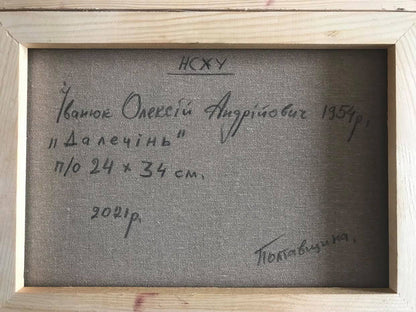 НСХУ
Іванюк Олексій Андрійович 1954р.
„Далечінь"
п/о 24 х 34 см.
2021р.
Полтавщина.